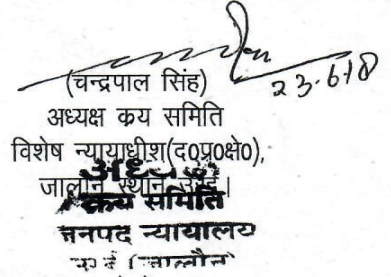 23.6.18
(चन्द्रपाल सिंह)
अध्यक्ष क्रय समिति
विशेष न्यायाधीश(द०प्र०क्षे०),
जालौन स्थान उरई।
अध्यक्ष
क्रय समिति
जनपद न्यायालय
उरई (जालौन)